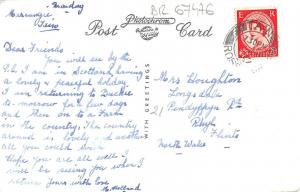 Sunday
BR 67476
Post Card
Photochrom
WITH GREETINGS
Dear Friends
You will see by the
P.C. I am in Scotland having
a lovely & peaceful holiday
I am returning to
to-morrow for a few days
and then on to a Farm
in the country. The country
around is lovely and another
all you could wish
Hope you are all well I
will be seeing you when I
return yours with love
Mrs Houghton
Longs
21 Pendyffryn Rd
Rhyl
Flints
North Wales